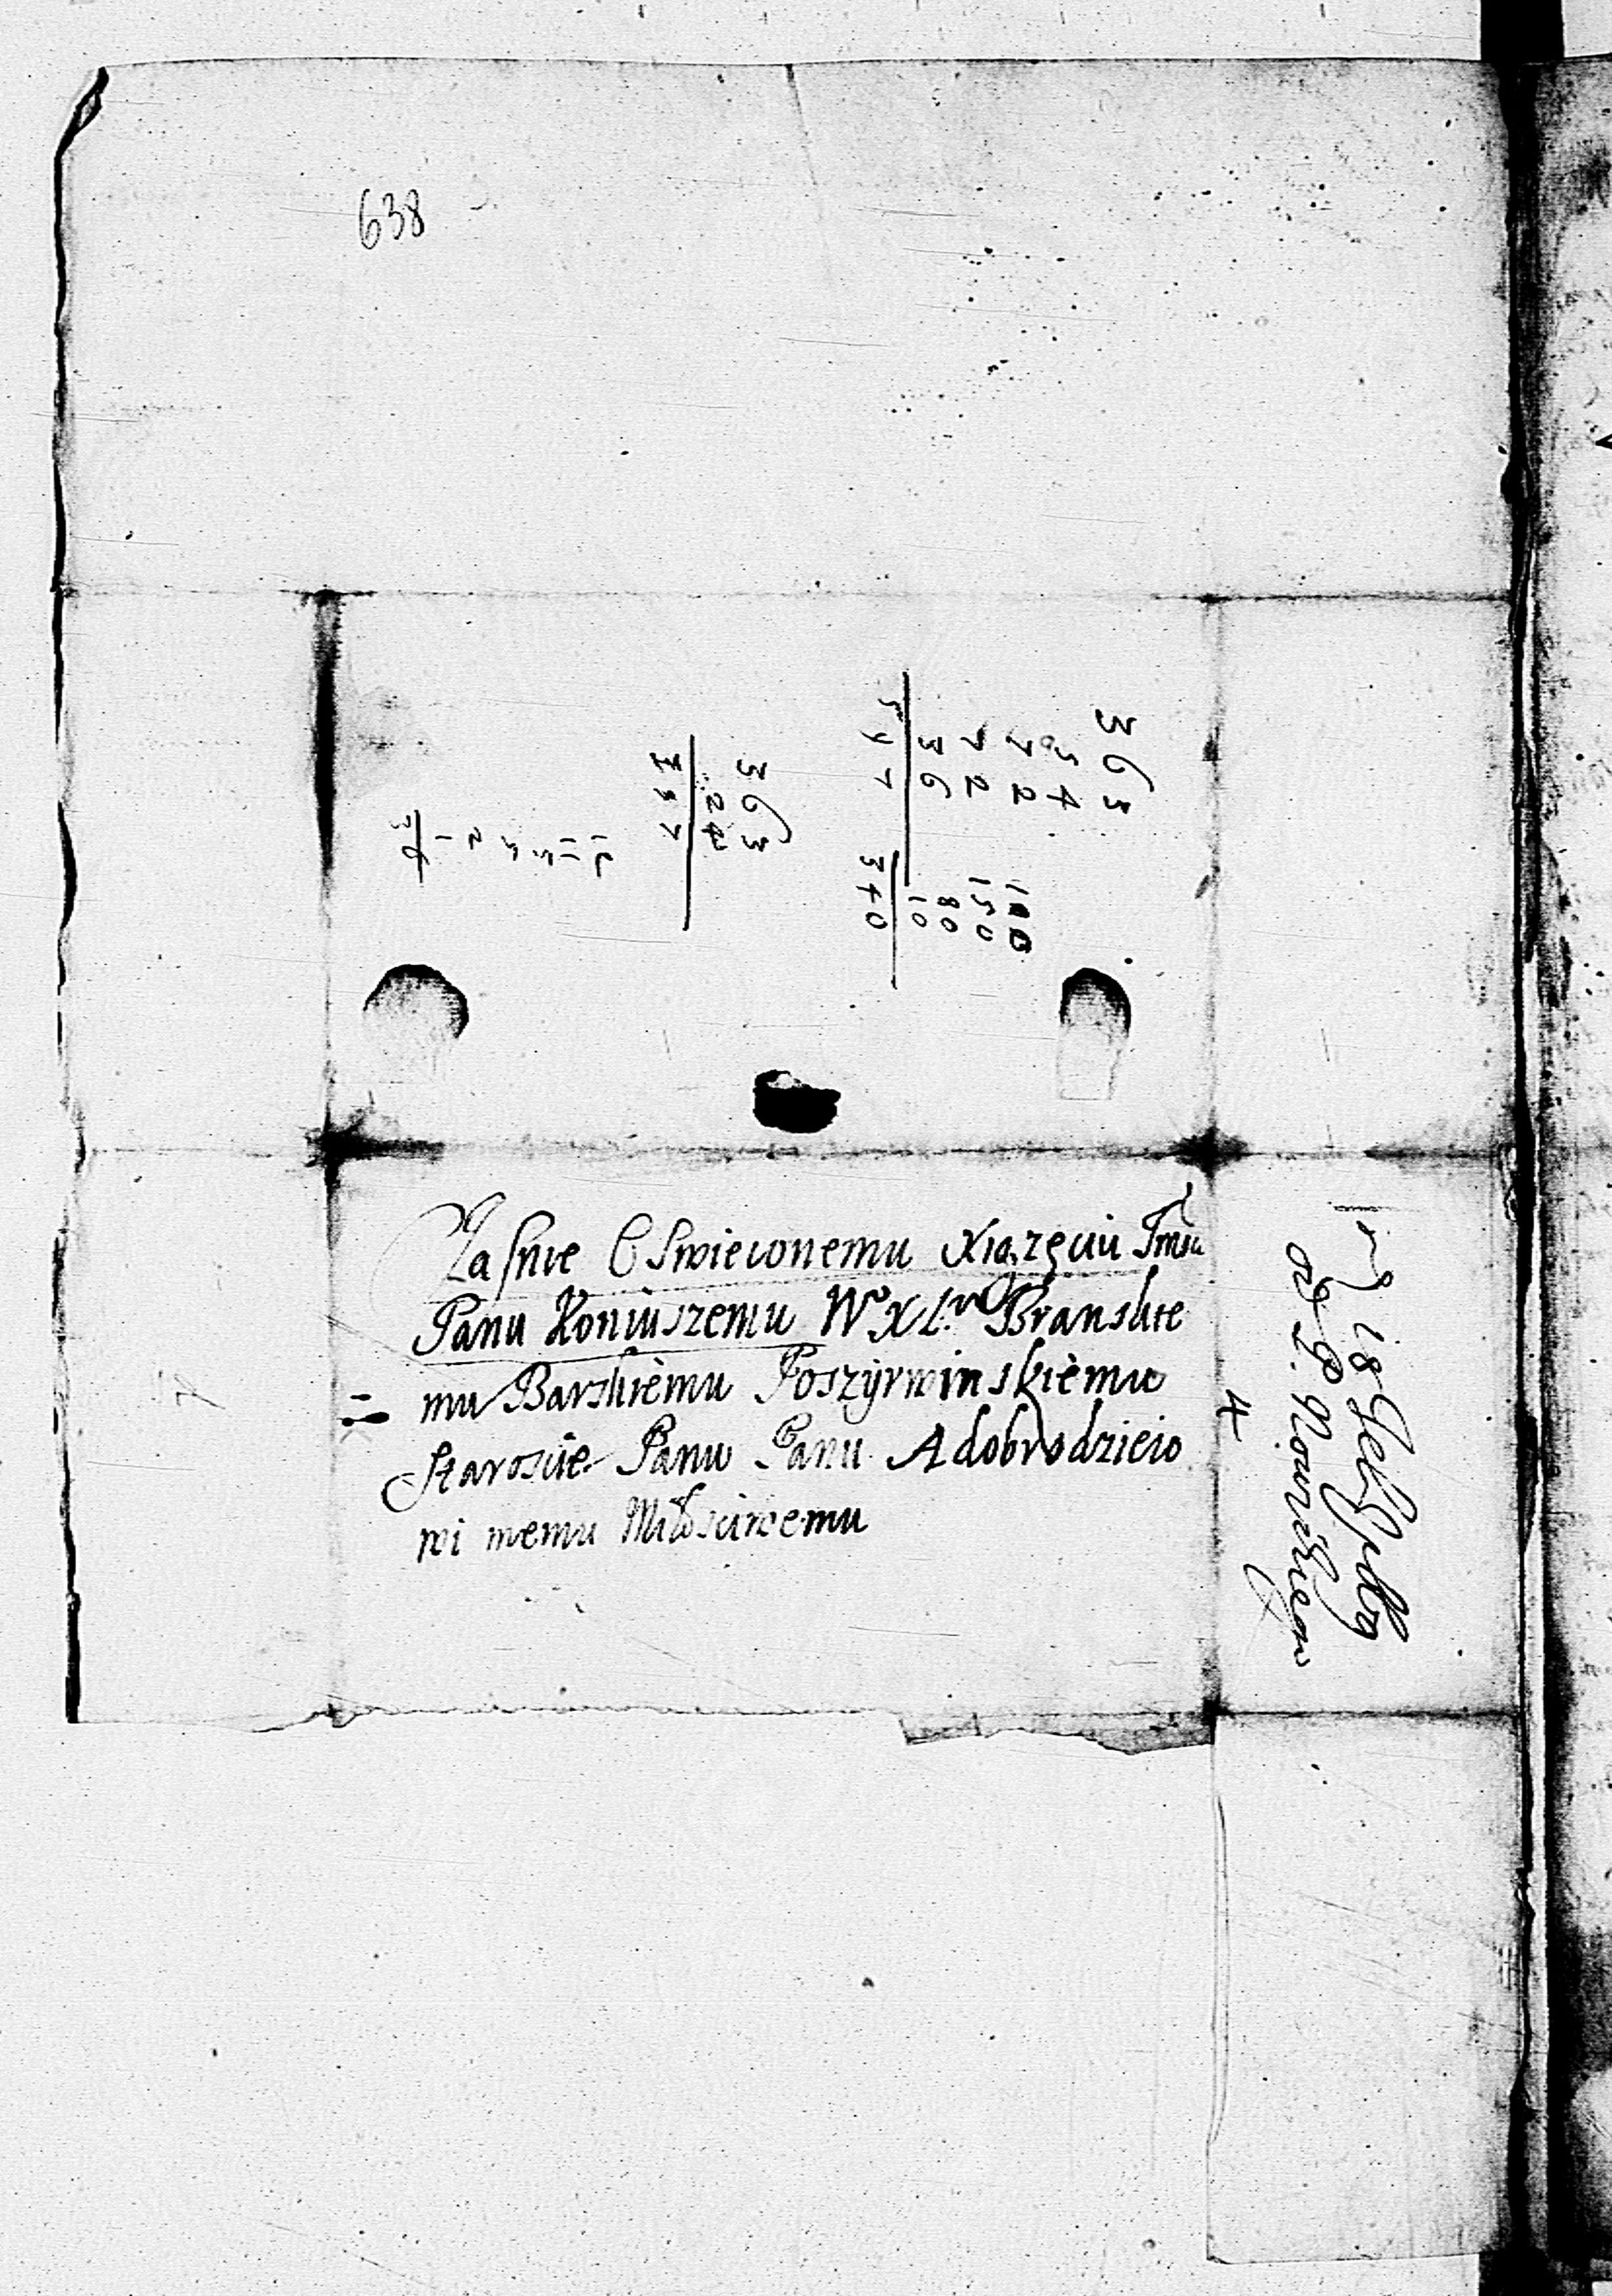 638
363
54
72
72
36
547
100
150
80
10
340
363
24
Jasnie Oswieconemu Xiązęciu Jmsci
Panu Koniuszemu W° X L° Branskie
mu Barskiemu Poszyrwinskiemu
Staroscie Panu Panu A dobrodzieio
wi memu Miłosciwemu
18
od P.
4